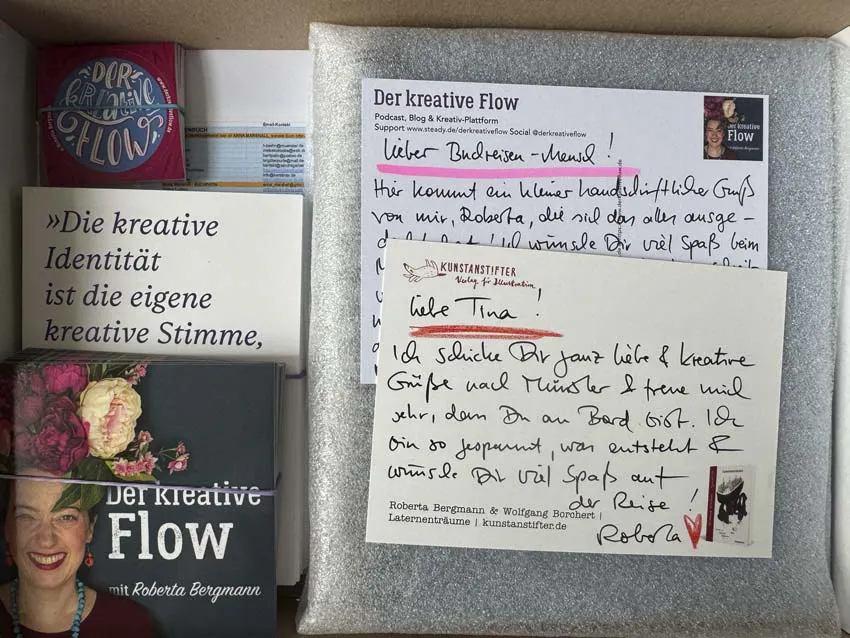 DER
kreative
FLOW
Email-Kontakt
»Die kreative
Identität
ist die eigene
kreative Stimme,
Der kreative
Flow
mit Roberta Bergmann
Der kreative Flow
Podcast, Blog & Kreativ-Plattform
Support www.steady.de/derkreativeflow Social @derkreativeflow
Der kreative
Flow
Lieber Buchreisen-Mensch!
Hier kommt ein kleiner handschriftlicher Gruß
von mir, Roberta, die sich das alles ausge-
dacht hat! Ich wünsche Dir viel Spaß beim
KUNSTANST!FTER
Verlag für Illustration
Liebe Tina!
Ich schicke Dir ganz liebe & kreative
Grüße nach Münster & freue mich
sehr, dass Du an Bord bist. Ich
bin so gespannt, was entsteht &
wünsche Dir viel Spaß auf
der Reise!
Roberta Bergmann & Wolfgang Borchert |
Laternenträume | kunstanstifter.de
Roberta